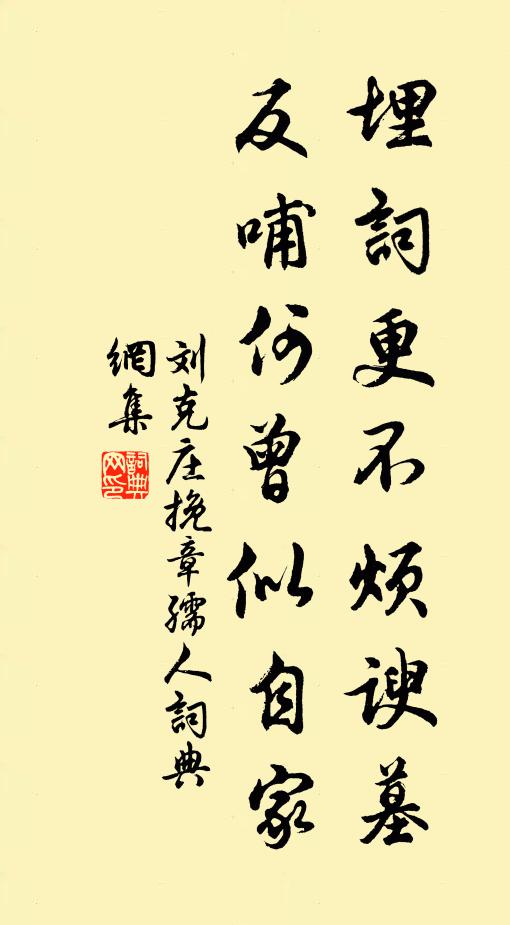 埋詞更不煩諛墓
反哺何曾似自家
刘克庄挽章孺人詞典
網集
詞典網印